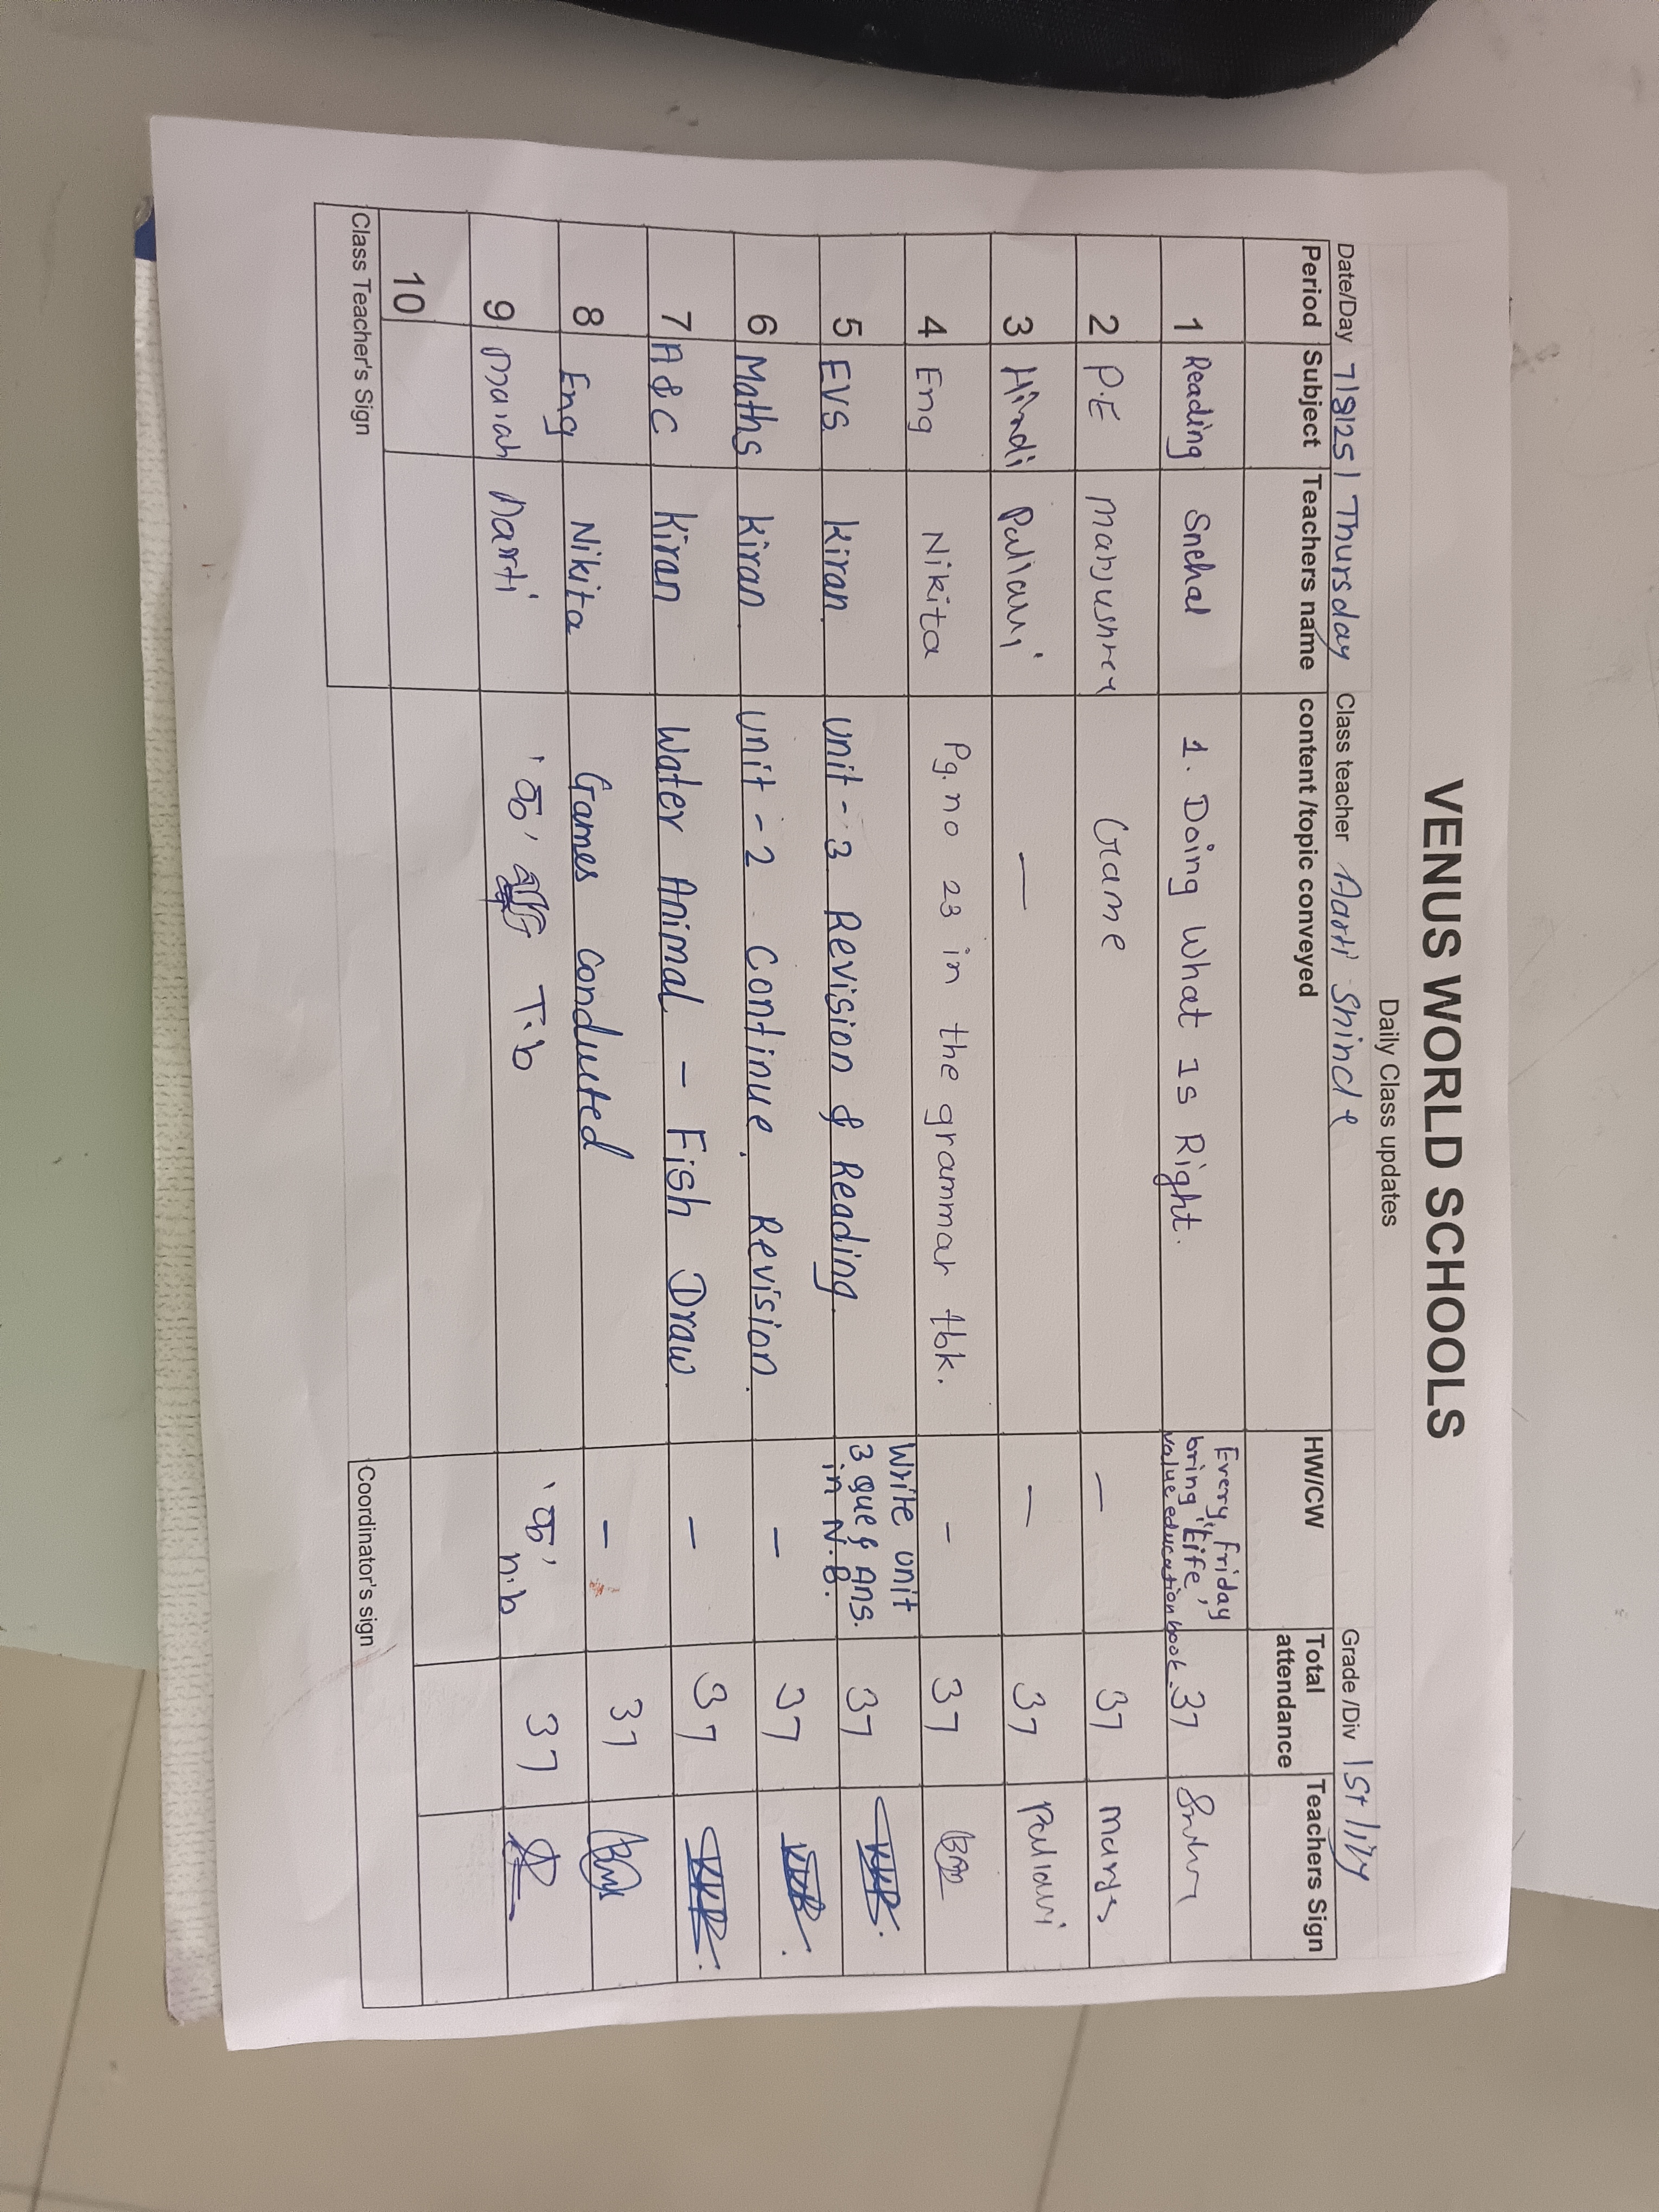 VENUS WORLD SCHOOLS
Daily Class updates
Date/Day 7/8/25/ Thursday Class teacher Aarti Shinde Grade /Div 1st lily
Period Subject Teachers name content /topic conveyed HW/CW Total attendance Teachers Sign
1 Reading Snehal 1. Doing What Is Right. Every friday bring "Life, value education book. 37
2 P.E Manjushree Game — 37
3 Hindi Pallavi — — 37 Pallavi
4 Eng Nikita Pg. no 23 in the grammar tbk. - 37
5 EVS Kiran Unit - 3 Revision & Reading. Write unit 3 que & Ans. in N.B. 37
6 Maths Kiran Unit - 2 Continue. Revision. - 37
7 A & C Kiran Water Animal - Fish Draw. - 37
8 Eng Nikita Games Conducted - 37
9 Aarti T.b n.b 37
10
Class Teacher's Sign Coordinator's sign